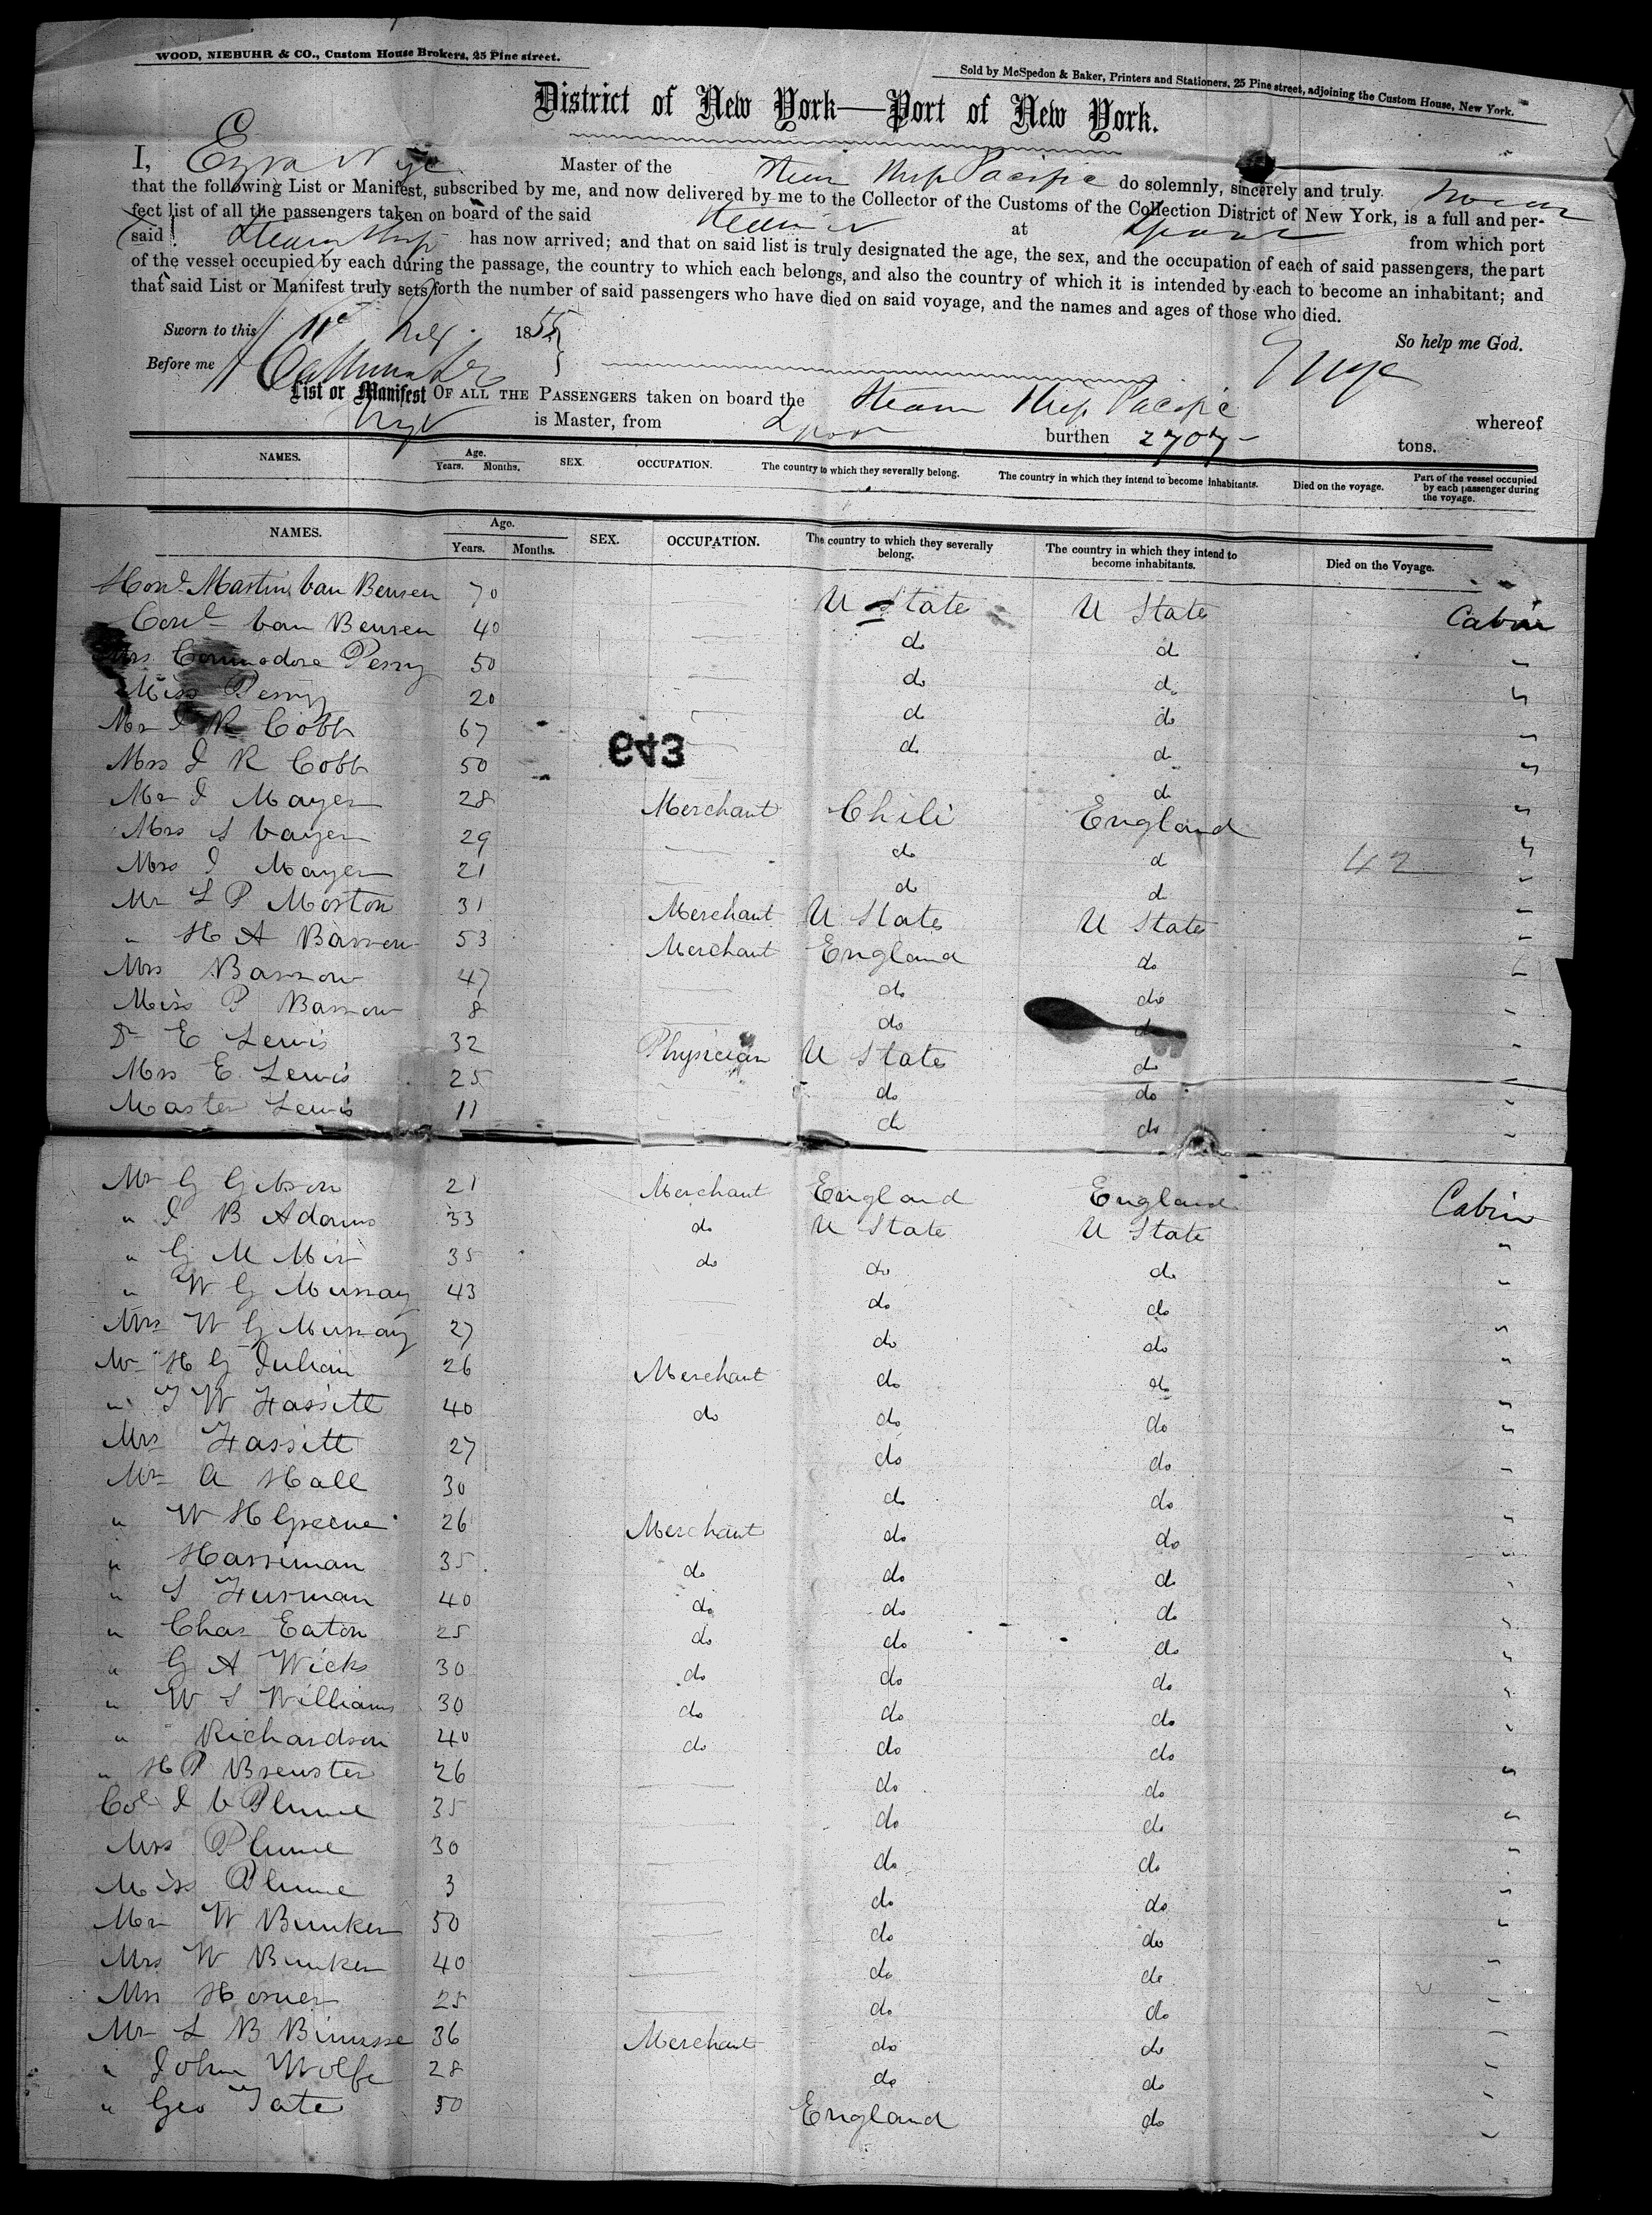 WOOD, NIEBUHR & CO., Custom House Brokers, 25 Pine street.
Sold by McSpedon & Baker, Printers and Stationers, 25 Pine street, adjoining the Custom House, New York.
District of New York—Port of New York.
I, Ezra Nye Master of the Steam Ship Pacific do solemnly, sincerely and truly swear
that the following List or Manifest, subscribed by me, and now delivered by me to the Collector of the Customs of the Collection District of New York, is a full and per-
fect list of all the passengers taken on board of the said Steamer at Lpool from which port
said Steam Ship has now arrived; and that on said list is truly designated the age, the sex, and the occupation of each of said passengers, the part
of the vessel occupied by each during the passage, the country to which each belongs, and also the country of which it is intended by each to become an inhabitant; and
that said List or Manifest truly sets forth the number of said passengers who have died on said voyage, and the names and ages of those who died.
So help me God.
Sworn to this 11 July 1855
Before me
E Nye
List or Manifest OF ALL THE PASSENGERS taken on board the Steam Ship Pacific whereof
Nye is Master, from Lpool burthen 2707 tons.
NAMES. Age. Years. Months. SEX. OCCUPATION. The country to which they severally belong. The country in which they intend to become inhabitants. Died on the voyage. Part of the vessel occupied by each passenger during the voyage.
NAMES. Age. Years. Months. SEX. OCCUPATION. The country to which they severally belong. The country in which they intend to become inhabitants. Died on the Voyage.
Honl Martin van Beuren 70 U State U State Cabin
Conl van Beuren 40 do do "
Mrs Commodore Perry 50 do do "
Miss Perry 20 do do "
Mr I R Cobb 67 do do "
643
Mrs I R Cobb 50 do "
Mr I Mayer 28 Merchant Chili England "
Mrs S vayer 29 do do "
42
Mrs I Mayer 21 do do "
Mr L P Morton 31 Merchant U States U States "
" H A Barrow 53 Merchant England do "
Mrs Barrow 47 do do "
Miss P Barrow 8 do do "
Dr E Lewis 32 Physician U States do "
Mrs E Lewis 25 do do "
Master Lewis 11 do do "
Mr G Gibson 21 Merchant England England Cabin
" I B Adams 33 do U State U State "
" G M Mir 35 do do do "
" W G Murray 43 do do "
Mrs W G Murray 27 do do "
Mr H G Julian 26 Merchant do do "
" T W Fassitt 40 do do do "
Mrs Fassitt 27 do do "
Mr A Hall 30 do do "
" W H Greene 26 Merchant do do "
" Harriman 35 do do do "
" S Furman 40 do do do "
" Chas Eaton 25 do do do "
" G A Wicks 30 do do do "
" W S Williams 30 do do do "
" Richardson 40 do do do "
" H P Brewster 26 do do "
Col I V Plume 35 do do "
Mrs Plume 30 do do "
Miss Plume 3 do do "
Mr W Bunker 50 do do "
Mrs W Bunker 40 do do "
Mrs Horner 25 do do "
Mr L B Binnsse 36 Merchant do do "
" John Wolfe 28 do do "
" Geo Tate 50 England do "